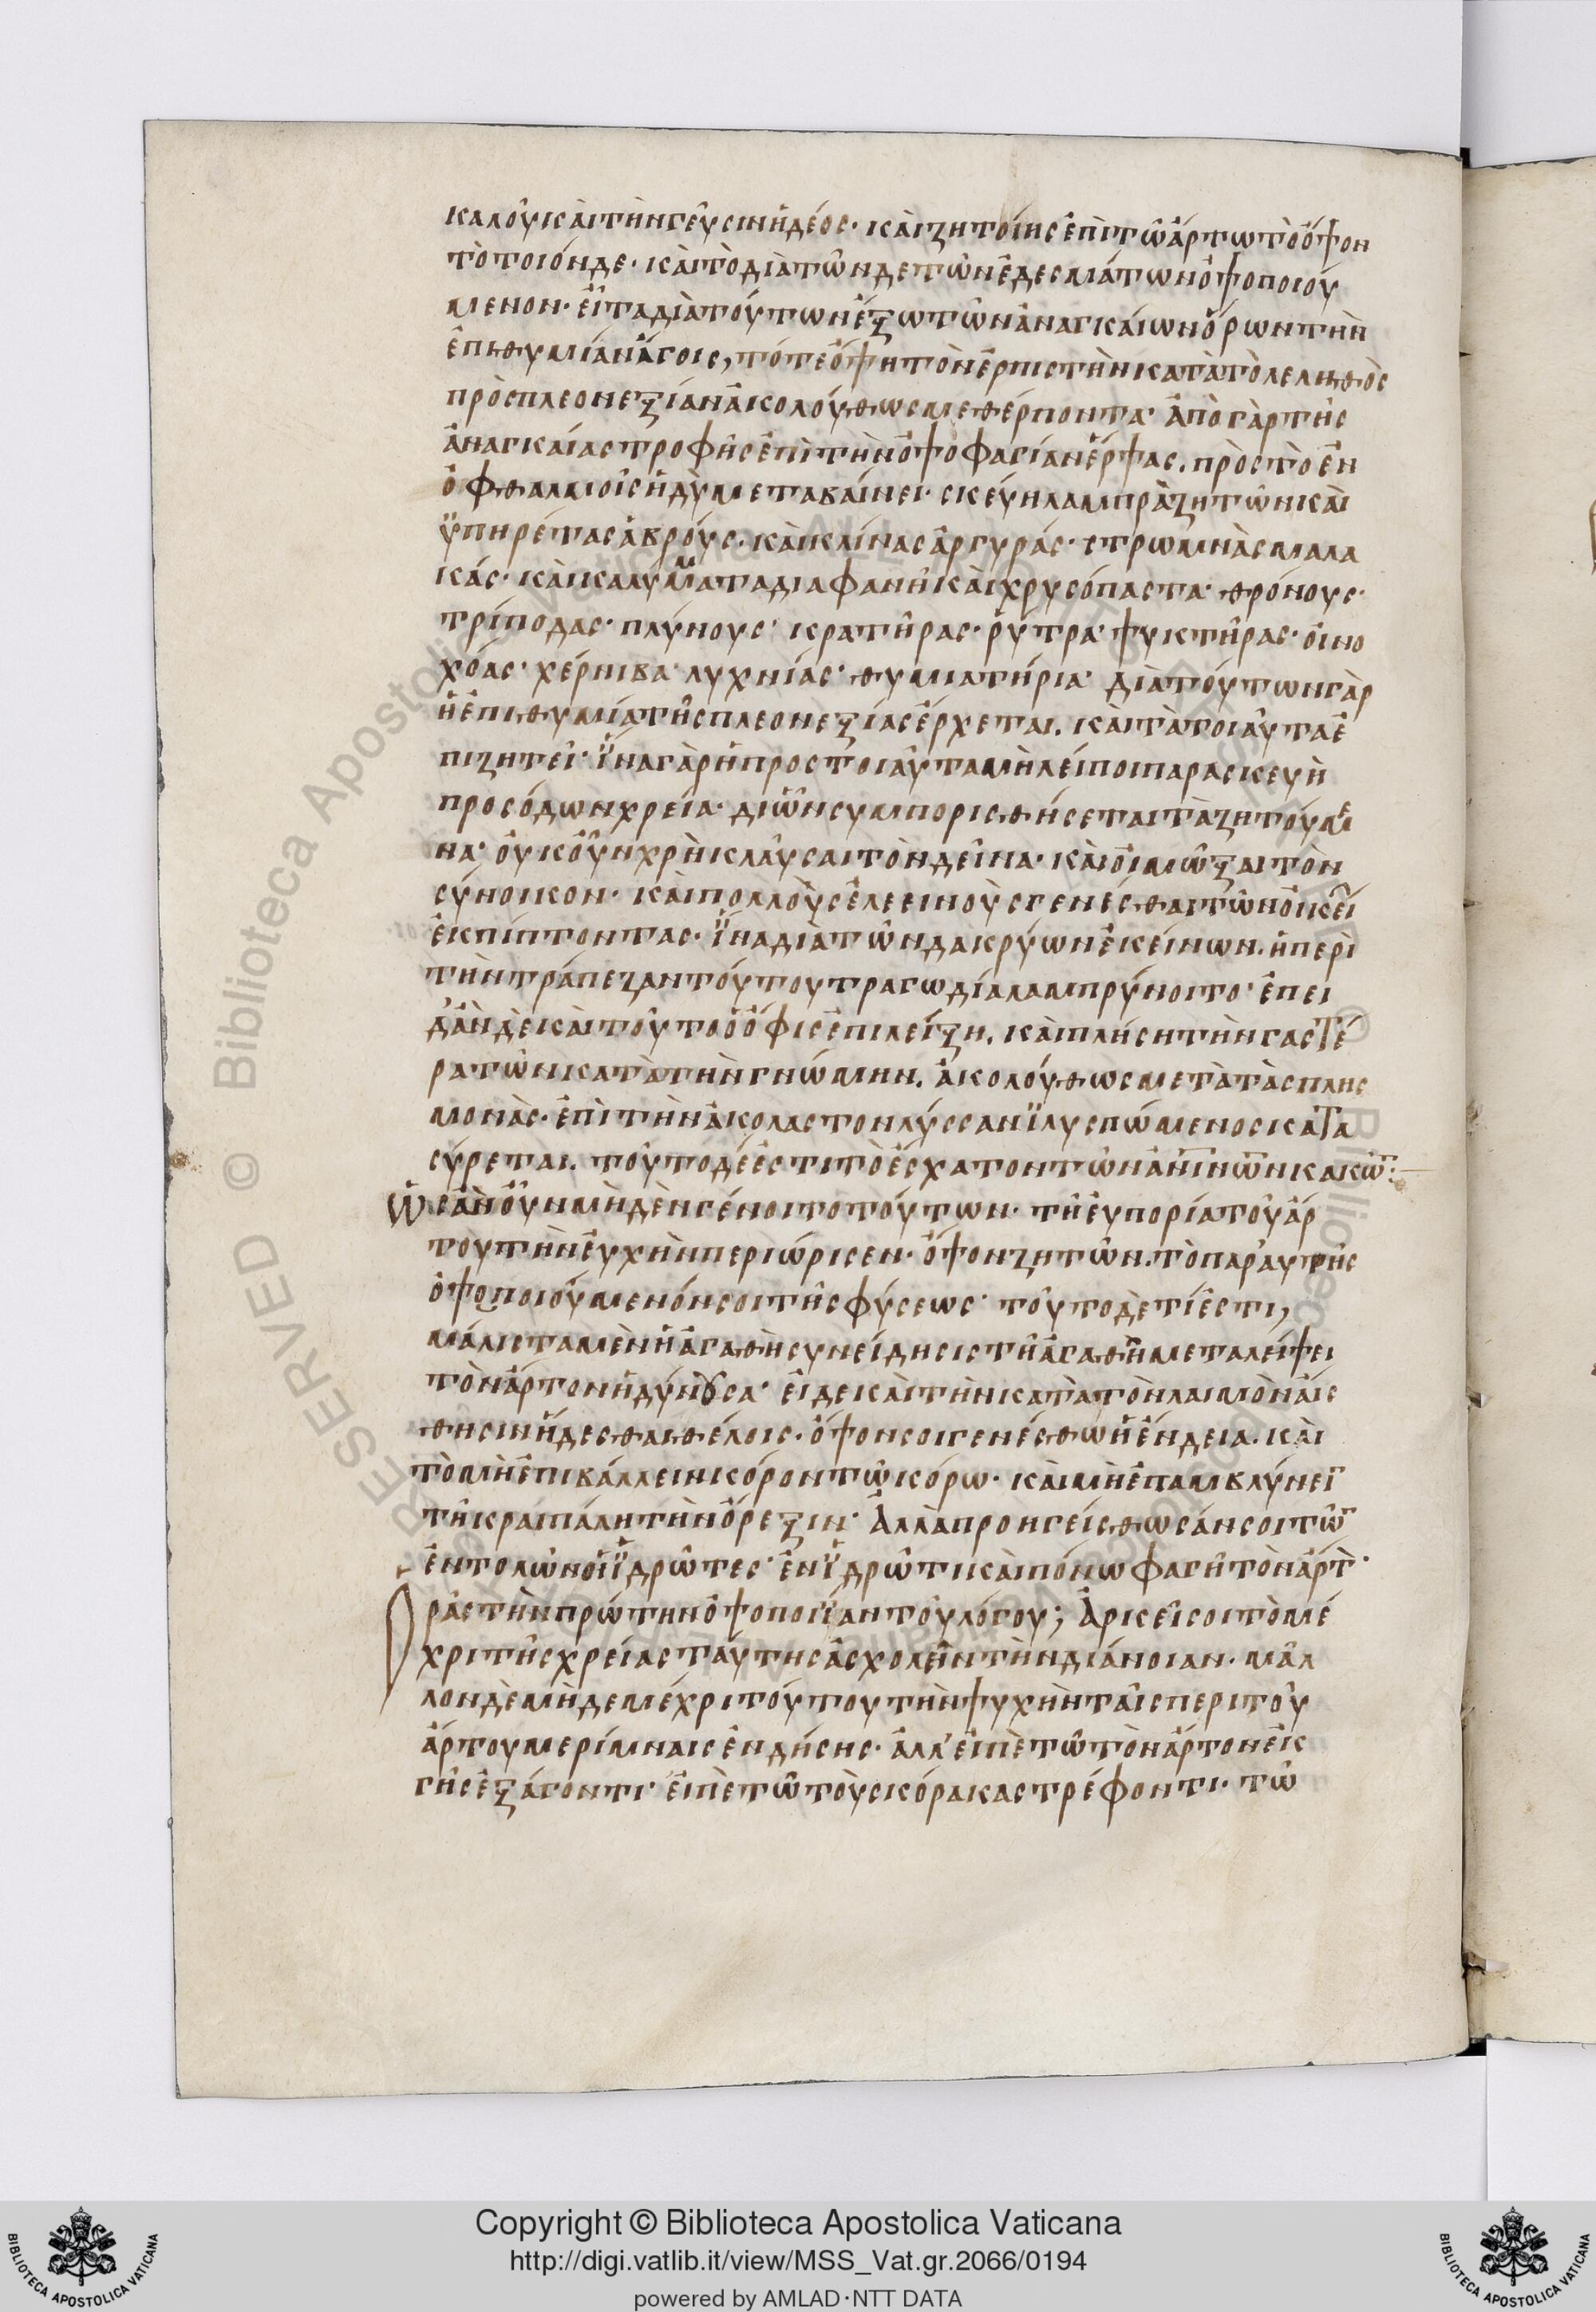 καλοῦ καὶ τὴν γεῦσιν ἡδέος· καὶ ζητοίης ἐπὶ τῶ ἄρτω τὸ ὄψον
τὸ τοιόνδε· καὶ τὸ διὰ τῶνδε τῶν ἐδεσμάτων ὀψοποιού
μενον· εἶτα διὰ τούτων ἔξω τῶν ἀναγκαίων ὅρων τὴν
ἐπιθυμίαν ἄγοις, τότε ὄψη τὸν ἑρπιστὴν κατὰ τὸ λεληθὸς
πρὸς πλεονεξίαν ἀκολούθως μεθέρποντα· ἀπὸ γὰρ τῆς
ἀναγκαίας τροφῆς ἐπὶ τὴν ὀψοφαγίαν ἕρψας. πρὸς τὸ ἐν
ὀφθαλμοῖς ἡδὺ μεταβαίνει· σκεύη λαμπρὰ ζητῶν καὶ
ϋπηρέτας ἁβρούς. καὶ κλίνας ἀργυράς· στρωμνὰς μαλα
κάς· καὶ καλύμματα διαφανῆ καὶ χρυσόπαστα· θρόνους·
τρίποδας· πλύνους· κρατῆρας· ῥύτρα· ψυκτῆρας· οἰνο
χόας· χέρνιβα· λυχνίας· θυμιατήρια· διὰ τούτων γὰρ
ἡ ἐπιθυμία τῆς πλεονεξίας ἔρχεται. καὶ τὰ τοιαῦτα ἐ
πιζητεῖ· ἵνα γὰρ ἡ προς τοιαῦτα μὴ λείποι παρασκευὴ
προσόδων χρεία· δι ὧν συμπορισθήσεται τὰ ζητούμε
να· οὐκοῦν χρὴ κλαῦσαι τὸν δεῖνα· καὶ οἰμῶξαι τὸν
σύνοικον· καὶ πολλοὺς ἐλεεινοὺς γενέσθαι τῶν οἰκεί
ἐκπίπτοντας· ἵνα διὰ τῶν δακρύων ἐκείνων. ἡ περὶ
τὴν τράπεζαν τούτου τραγωδία λαμπρύνοιτο· ἐπει
δὰν δὲ καὶ τοῦτο ὁ ὄφις ἐπιλείξη. καὶ πλήση τὴν γαστέ
ρα τῶν κατὰ τὴν γνώμην. ἀκολούθως μετὰ τὰς πλησ
μονὰς· ἐπὶ τὴν ἀκόλαστον λύσσαν ϊλυσπώμενος κατα
σύρεται. τοῦτο δέ ἐστι τὸ ἔσχατον τῶν ἀνίνων κακῶν:
Ὡς ἂν οὖν μὴδὲν γένοιτο τούτων· τῆ εὐπορία τοῦ ἄρ
του τὴν εὐχὴν περιώρισεν· ὄψον ζητῶν. τὸ παραυτῆς
ὀψοποιούμενόν σοι τῆς φύσεως· τοῦτο δὲ τί ἐστι,
μάλιστα μὲν ἡ ἀγαθὴ συνείδησις τῆ ἀγαθῆ μεταλείψει
τὸν ἄρτον ἡδύνουσα· εἰ δε καὶ τὴν κατὰ τὸν λαιμὸν αἴσ
θησιν ἥδεσθαι θέλοις· ὄψον σοι γενέσθω ἡ ἔνδεια. καὶ
τὸ μὴ ἐπιβάλλειν κόρον τῶ κόρω· καὶ μὴ ἐπαμβλύνειν
τῆ κραιπάλη τὴν ὄρεξιν· Ἀλλὰ προηγείσθωσάν σοι τῶν
ἐντολῶν οἱ ἱδρῶτες· ἐν ἱδρῶτι καὶ πόνω φαγῆ τὸν ἄρτον·
Ὁρᾶς τὴν πρώτην ὀψοποιΐαν τοῦ λόγου; Ἀρκεῖ σοι τὸ μέ
χρι τῆς χρείας ταύτης ἀσχολεῖν τὴν διάνοιαν· μᾶλ
λον δὲ μὴδε μέχρι τούτου τὴν ψυχὴν ταῖς περι τοῦ
ἄρτου μερίμναις ἐνδήσης· ἀλλ' εἰπὲ τῶ τὸν ἄρτον ἐκ
γῆς ἐξάγοντι· εἰπὲ τῶ τοὺς κόρακας τρέφοντι· τῶ
Copyright © Biblioteca Apostolica Vaticana
http://digi.vatlib.it/view/MSS_Vat.gr.2066/0194
powered by AMLAD·NTT DATA